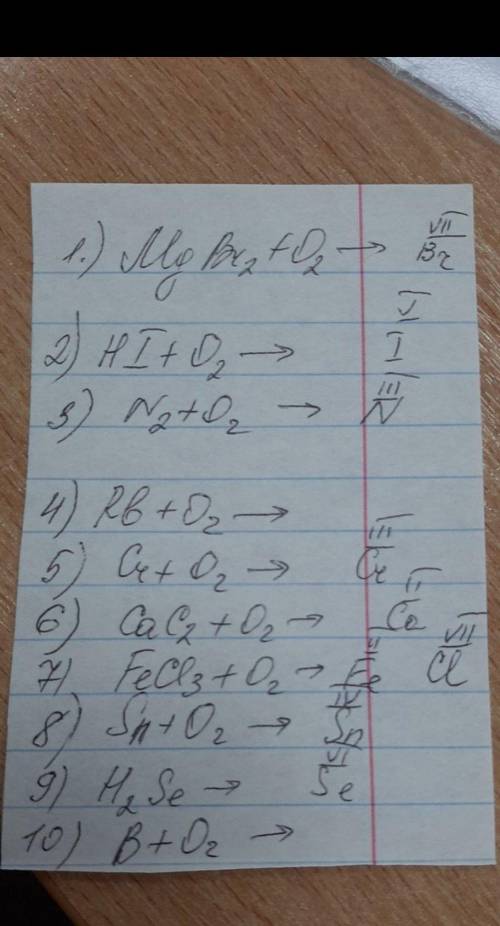 1.) MgBr₂ + O₂ → VII Br
2) HI + O₂ → V I
3) N₂ + O₂ → III N
4) Rb + O₂ →
5) Cr + O₂ → III Cr
6) CaC₂ + O₂ → II Ca
7) FeCl₃ + O₂ → II Fe VII Cl
8) Sn + O₂ → IV Sn
9) H₂Se → VI Se
10) B + O₂ →